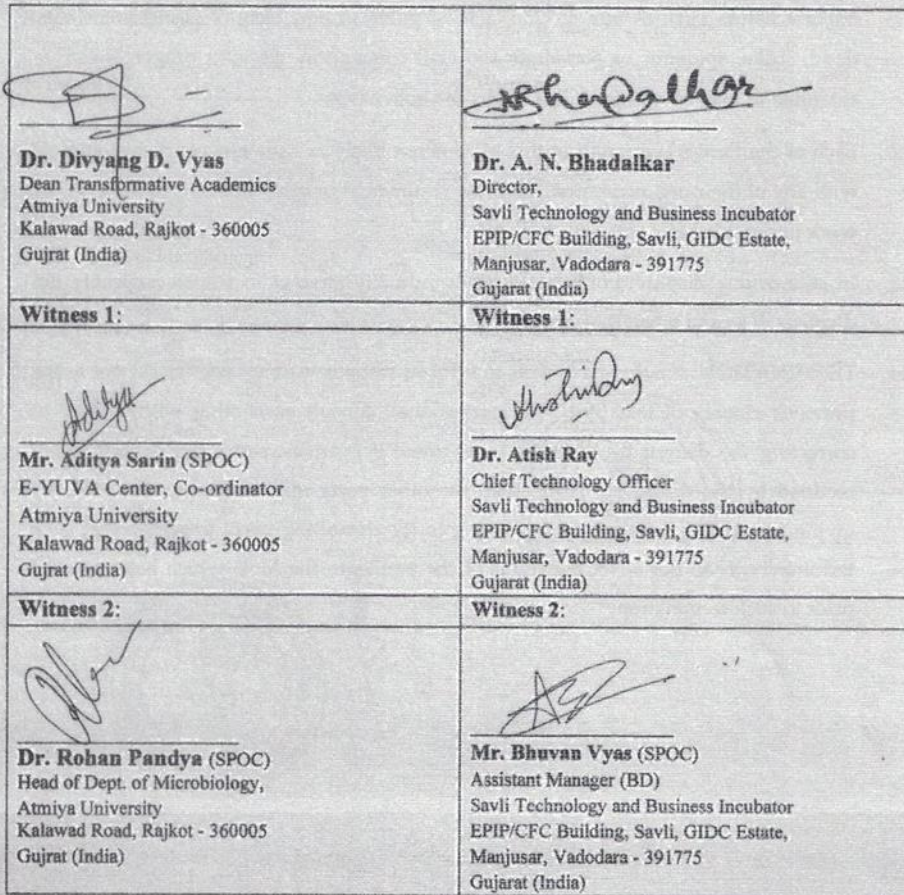 Dr. Divyang D. Vyas
Dean Transformative Academics
Atmiya University
Kalawad Road, Rajkot - 360005
Gujrat (India)
Dr. A. N. Bhadalkar
Director,
Savli Technology and Business Incubator
EPIP/CFC Building, Savli, GIDC Estate,
Manjusar, Vadodara - 391775
Gujarat (India)
Witness 1:
Aditya
Mr. Aditya Sarin (SPOC)
E-YUVA Center, Co-ordinator
Atmiya University
Kalawad Road, Rajkot - 360005
Gujrat (India)
Witness 1:
Dr. Atish Ray
Chief Technology Officer
Savli Technology and Business Incubator
EPIP/CFC Building, Savli, GIDC Estate,
Manjusar, Vadodara - 391775
Gujarat (India)
Witness 2:
Dr. Rohan Pandya (SPOC)
Head of Dept. of Microbiology,
Atmiya University
Kalawad Road, Rajkot - 360005
Gujrat (India)
Witness 2:
Mr. Bhuvan Vyas (SPOC)
Assistant Manager (BD)
Savli Technology and Business Incubator
EPIP/CFC Building, Savli, GIDC Estate,
Manjusar, Vadodara - 391775
Gujarat (India)